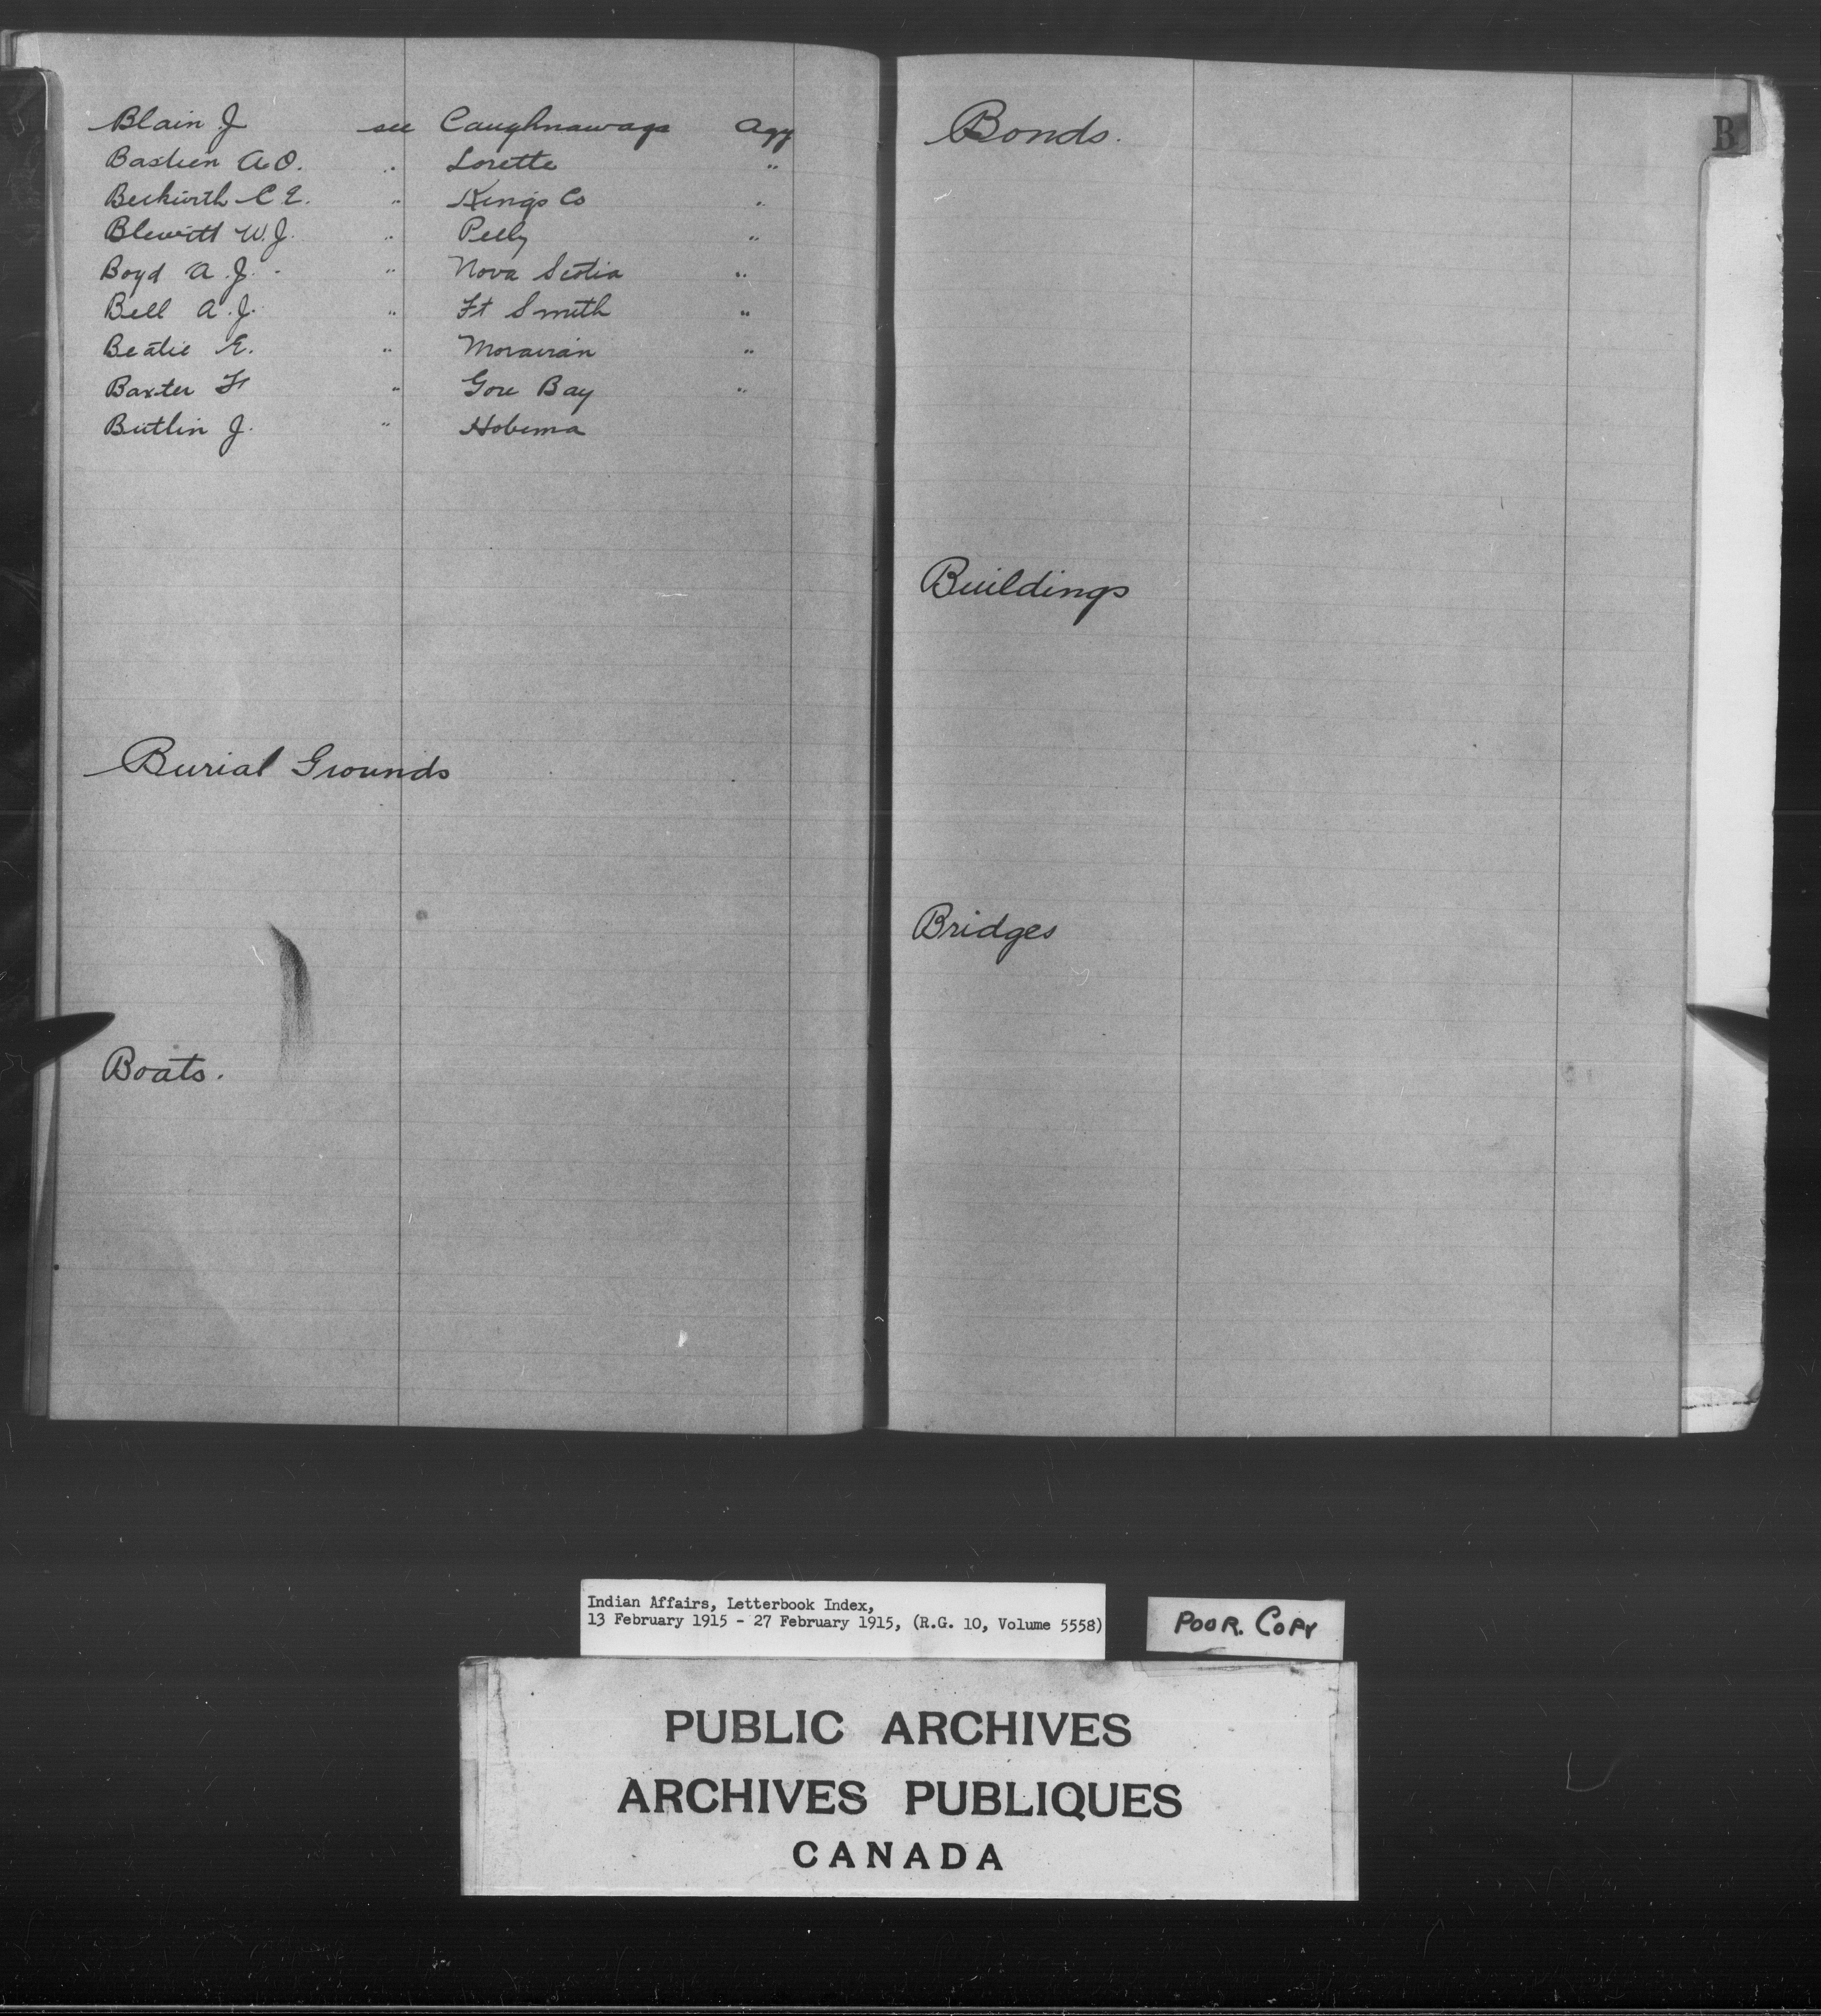 Blain J see Caughnawaga Agy
Bastien A.O. " Lorette "
Beckwith C E. " Kings Co "
Blewitt W.J. " Pelly "
Boyd A.J. " Nova Scotia "
Bell A.J. " Ft Smith "
Beatie E. " Moravian "
Baxter " Gore Bay "
Butlin J. " Hobema
Burial Grounds
Boats.
Bonds.
B
Buildings
Bridges
Indian Affairs, Letterbook Index,
13 February 1915 - 27 February 1915, (R.G. 10, Volume 5558)
POOR. COPY
PUBLIC ARCHIVES
ARCHIVES PUBLIQUES
CANADA